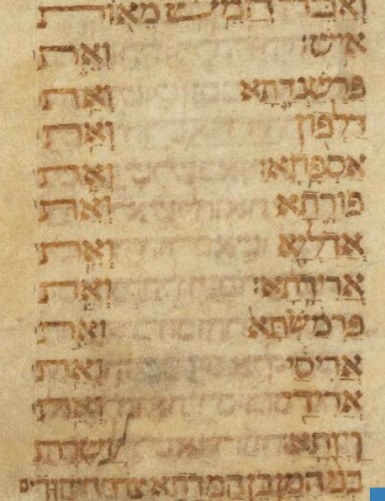 ואבד חמש מאות
איש׃ ואת
פרשנדתא ואת
דלפון ואת
אספתא׃ ואת
פורתא ואת
אדליא ואת
ארידתא׃ ואת
פרמשתא ואת
אריסי ואת
ארידי ואת
ויזתא עשרת
בני המן בן המדתא צרר היהודים